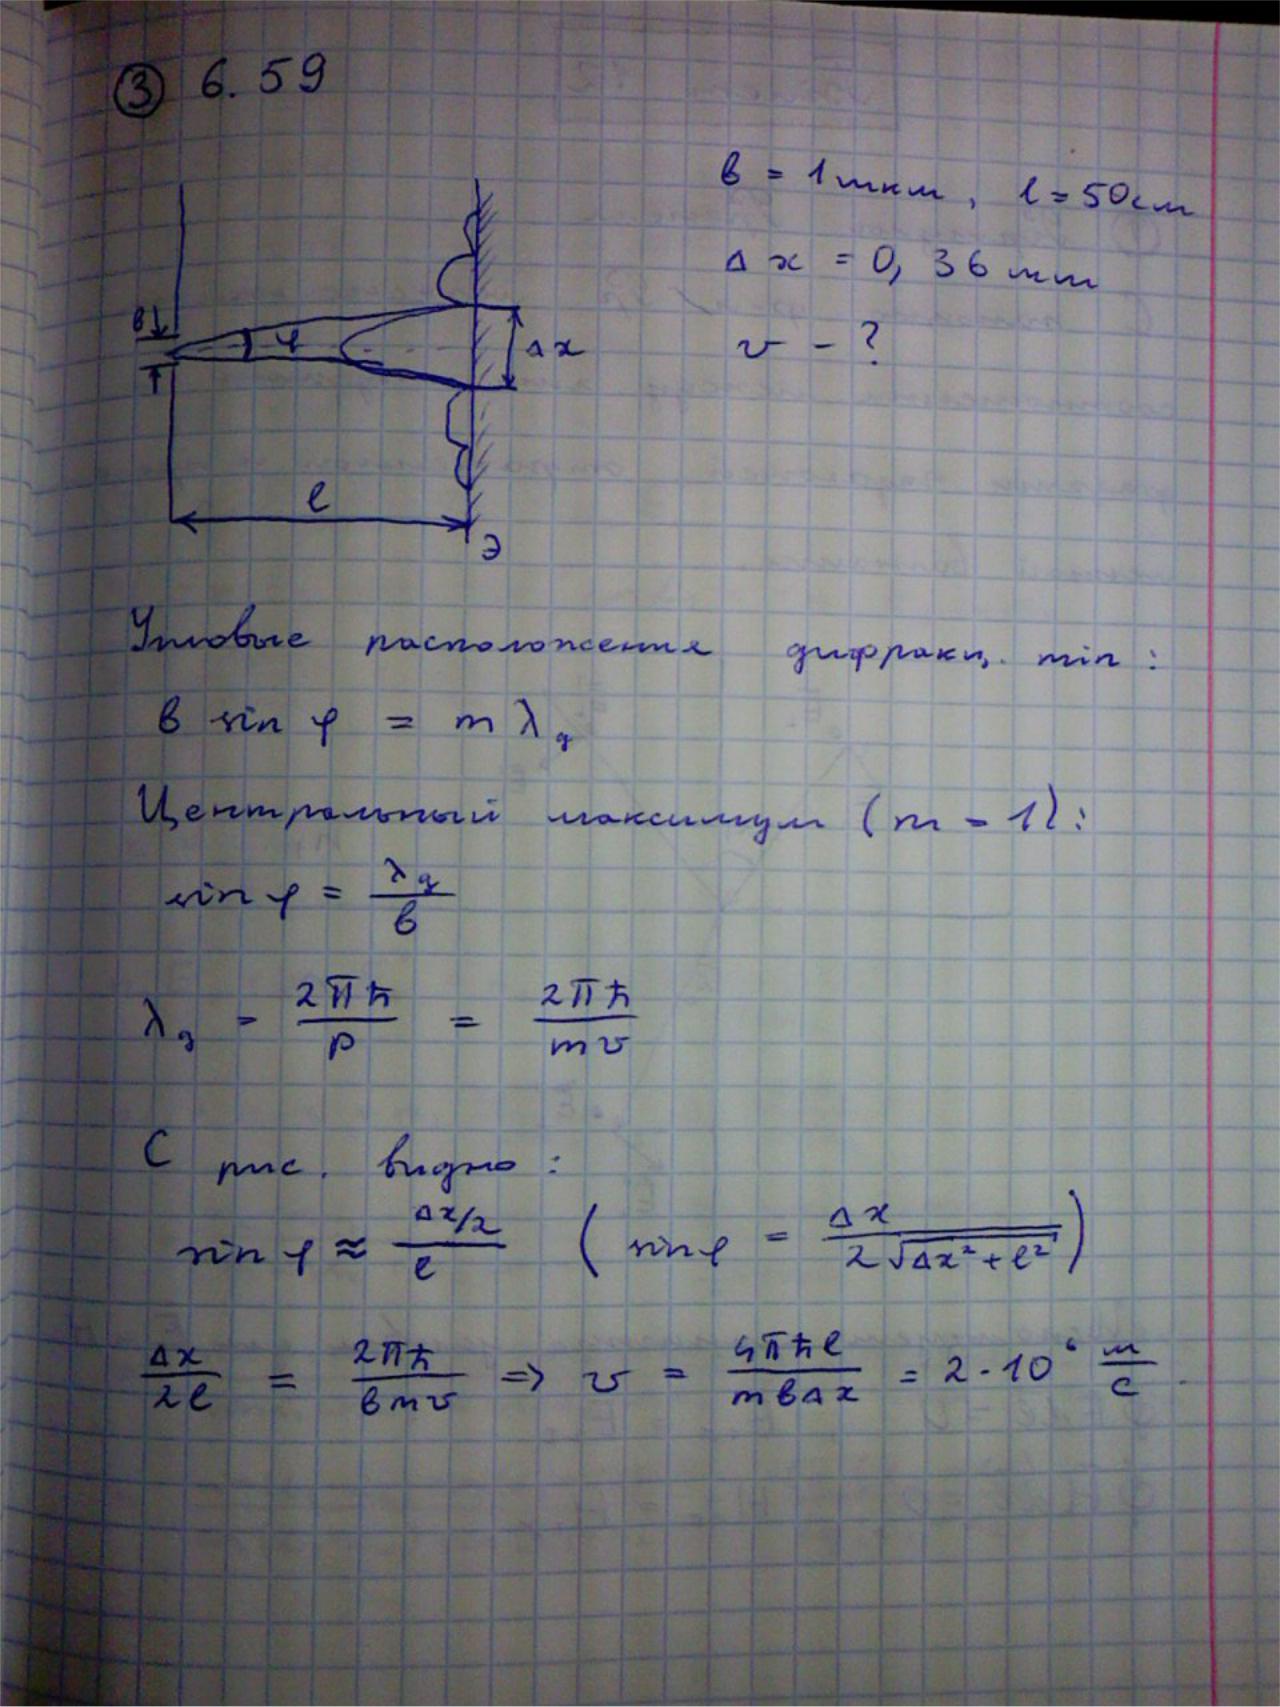 ③ 6.59
в = 1мкм, l = 50см
Δx = 0,36 мм
v - ?
в
φ
Δx
l
Э
Угловые расположения дифракц. min:
в sin φ = m λд
Центральный максимум (m = 1):
sin φ = λд / в
λд = 2πħ / p = 2πħ / mv
С рис. видно:
sin φ ≈ Δx/2 / l ( sin φ = Δx / 2√Δx² + l² )
Δx / 2l = 2πħ / вmv => v = 4πħl / mвΔx = 2·10⁶ м/с.